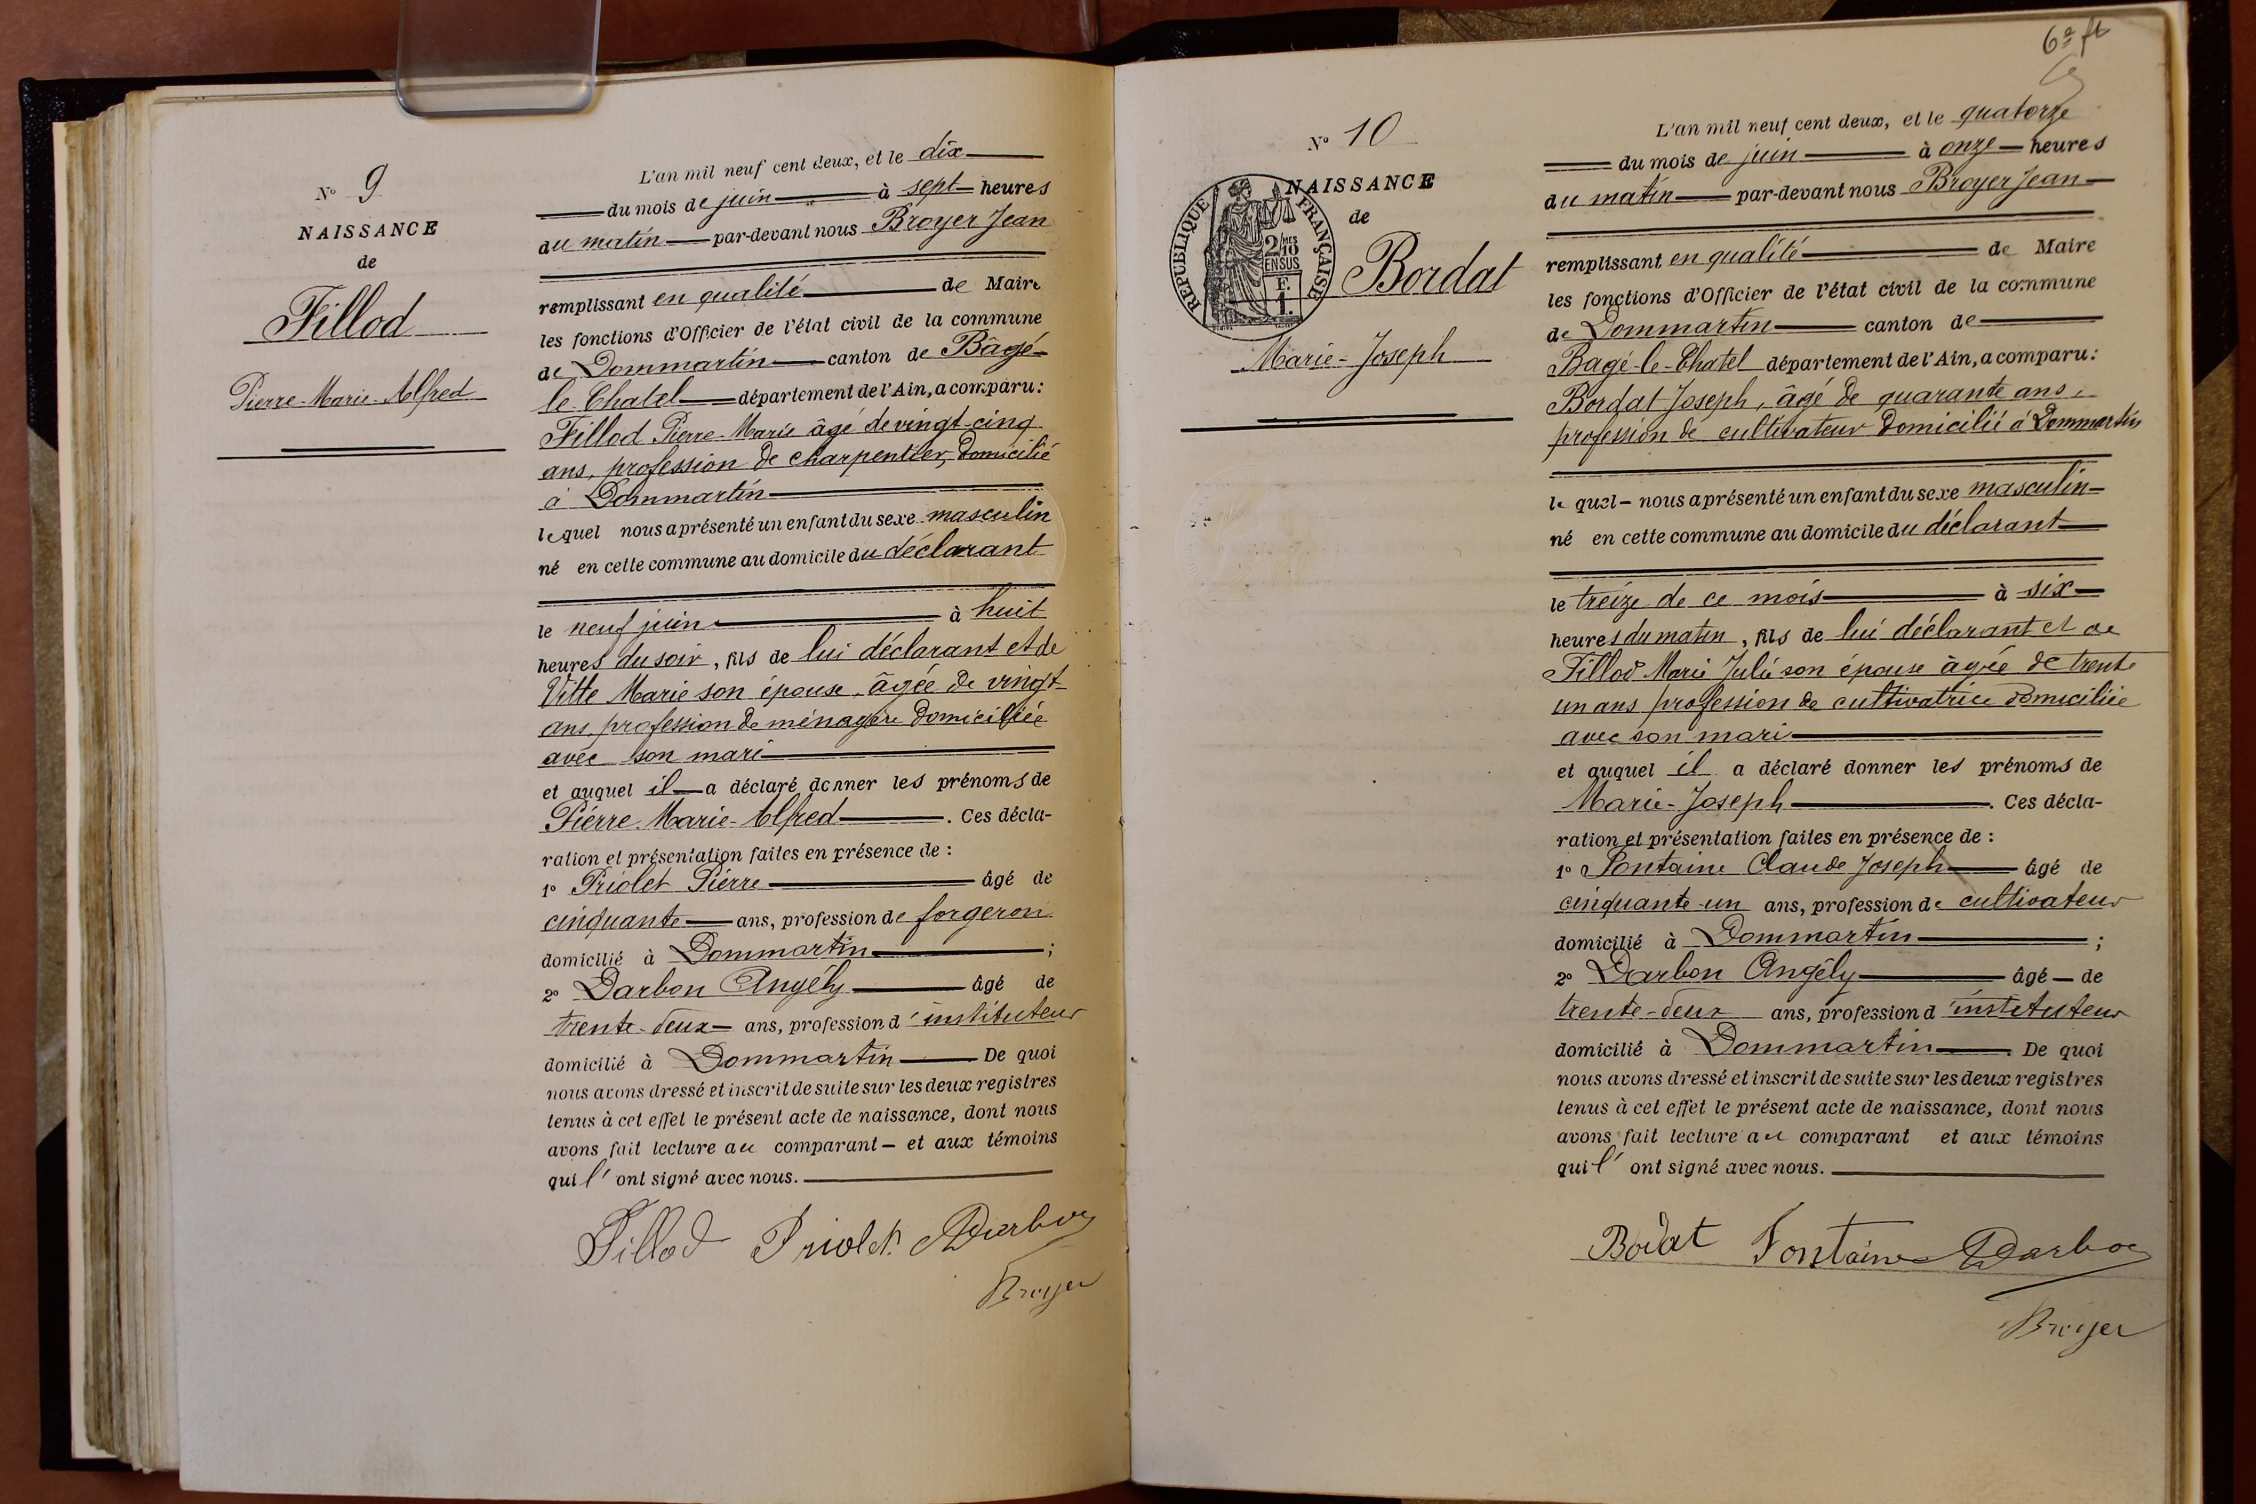 N° 9
NAISSANCE
de
Fillod
Pierre-Marie-Alfred
L'an mil neuf cent deux, et le dix
du mois de juin à sept heures
du matin par-devant nous Broyer Jean
remplissant en qualité de Maire
les fonctions d'Officier de l'état civil de la commune
de Dommartin canton de Bâgé-
le-Chatel département de l'Ain, a comparu:
Fillod Pierre-Marie âgé de vingt-cinq
ans, profession de charpentier, domicilié
à Dommartin
lequel nous a présenté un enfant du sexe masculin
né en cette commune au domicile du déclarant
le neuf juin à huit
heures du soir, fils de lui déclarant et de
Vitte Marie son épouse, âgée de vingt-
ans, profession de ménagère domiciliée
avec son mari
et auquel il a déclaré donner les prénoms de
Pierre-Marie-Alfred. Ces décla-
ration et présentation faites en présence de :
1° Priolet Pierre âgé de
cinquante ans, profession de forgeron
domicilié à Dommartin ;
2° Darbon Angély âgé de
trente-deux ans, profession d'instituteur
domicilié à Dommartin De quoi
nous avons dressé et inscrit de suite sur les deux registres
tenus à cet effet le présent acte de naissance, dont nous
avons fait lecture au comparant et aux témoins
qui l'ont signé avec nous.
Fillod Priolet Darbon
Broyer
6e ft
N° 10
NAISSANCE
de
Bordat
Marie-Joseph
REPUBLIQUE FRANÇAISE
2/10MES
EN SUS
F.
1.
L'an mil neuf cent deux, et le quatorze
du mois de juin à onze heures
du matin par-devant nous Broyer Jean
remplissant en qualité de Maire
les fonctions d'Officier de l'état civil de la commune
de Dommartin canton de
Bagé-le-Chatel département de l'Ain, a comparu:
Bordat Joseph, âgé de quarante ans,
profession de cultivateur domicilié à Dommartin
lequel nous a présenté un enfant du sexe masculin
né en cette commune au domicile du déclarant
le treize de ce mois à six
heures du matin, fils de lui déclarant et de
Fillod Marie Julie son épouse âgée de trente
un ans profession de cultivatrice domiciliée
avec son mari
et auquel il a déclaré donner les prénoms de
Marie-Joseph. Ces décla-
ration et présentation faites en présence de :
1° Fontaine Claude Joseph âgé de
cinquante-un ans, profession de cultivateur
domicilié à Dommartin ;
2° Darbon Angély âgé de
trente-deux ans, profession d'instituteur
domicilié à Dommartin. De quoi
nous avons dressé et inscrit de suite sur les deux registres
tenus à cet effet le présent acte de naissance, dont nous
avons fait lecture au comparant et aux témoins
qui l'ont signé avec nous.
Bordat Fontaine Darbon
Broyer